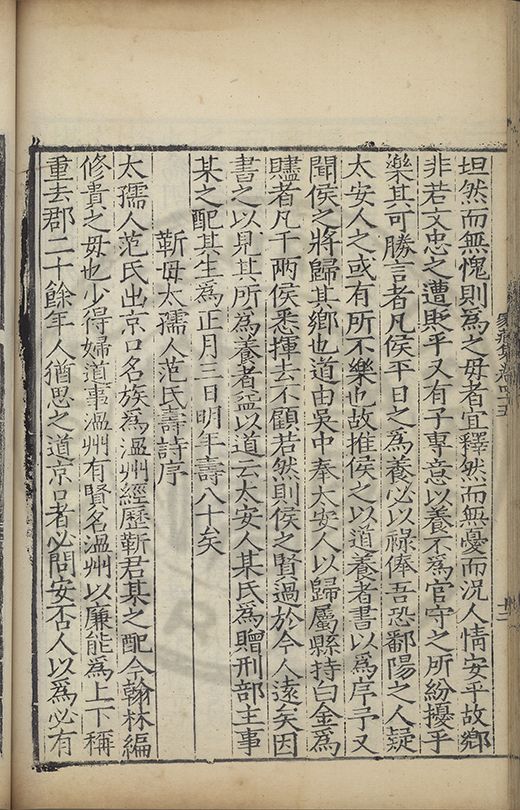 坦然而無愧則為之母者宜釋然而無憂而況人情安乎故鄉
非若文忠之遭貶乎又有子專意以養不為官守之所紛擾乎
樂其可勝言者凡侯平日之為養必以祿俸吾恐鄱陽之人疑
太安人之或有所不樂也故推侯之以道養者書以為序予又
聞侯之將歸其鄉也道由吳中奉太安人以歸屬縣持白金為
贐者凡千兩侯悉揮去不顧若然則侯之賢過於今人遠矣因
書之以見其所為養者益以道云太安人某氏為贈刑部主事
某之配其生為正月三日明年壽八十矣
靳母太孺人范氏壽詩序
太孺人范氏出京口名族為溫州經歷靳君某之配今翰林編
修貴之母也少得婦道事溫州有賢名溫州以廉能為上下稱
重去郡二十餘年人猶思之道京口者必問安否人以為必有
家藏集卷四十五
十二